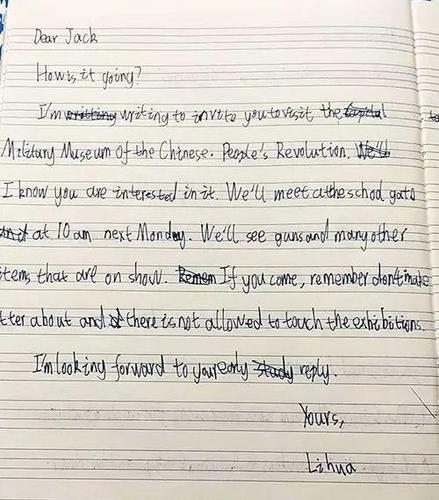 Dear Jack
How is it going?
I'm writing to invite you to visit the
Military Museum of the Chinese. People's Revolution.
I know you are interested in it. We'll meet at the school gate
at 10 am next Monday. We'll see guns and many other
items that are on show. If you come, remember don't make
tter about and there is not allowed to touch the exhibitions.
I'm looking forward to your early reply.
Yours,
Lihua